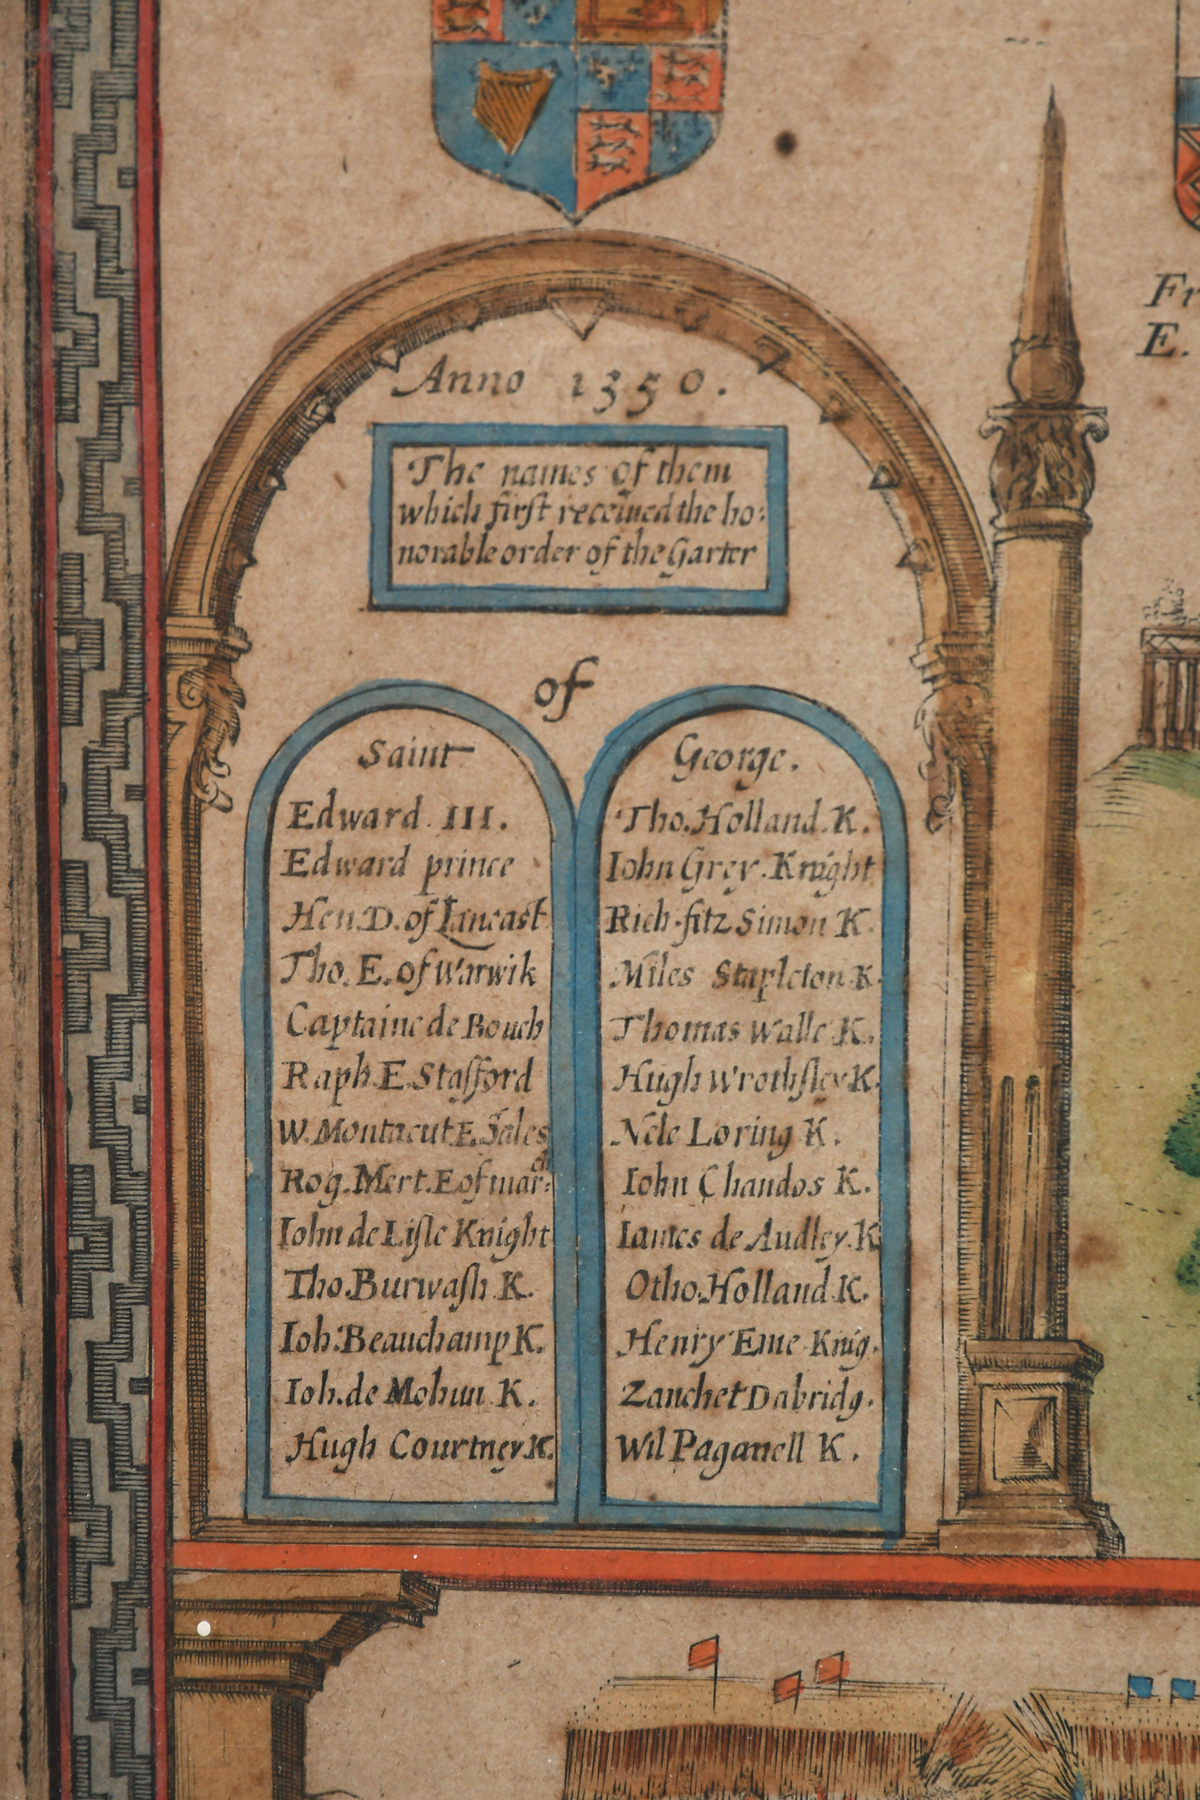 Anno 1350.
The names of them
which first receiued the ho:
norable order of the Garter
of
Saint
Edward III.
Edward prince
Hen. D. of Lancast
Tho. E. of warwik
Captaine de Bouch
Raph. E. Stafford
W. Montacut E. Sales
Rog. Mert. E of mar:ch
Iohn de Lisle Knight
Tho. Burwash K.
Ioh: Beauchamp K.
Ioh. de Mohun K.
Hugh Courtney K.
George.
Tho. Holland K.
Iohn Grey. Knight
Rich. fitz Simon K.
Miles Stapleton K.
Thomas Walle K.
Hugh Wrothsley K.
Nele Loring K.
Iohn Chandos K.
Iames de Audley. K
Otho. Holland K.
Henry Eme Knig.
Zanchet Dabridg.
Wil Paganell K.
Fr
E.